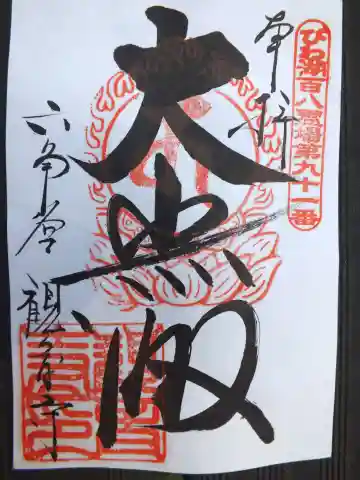 びわ湖百八霊場第九十一番
奉拝
大悲殿
六角堂 観音寺